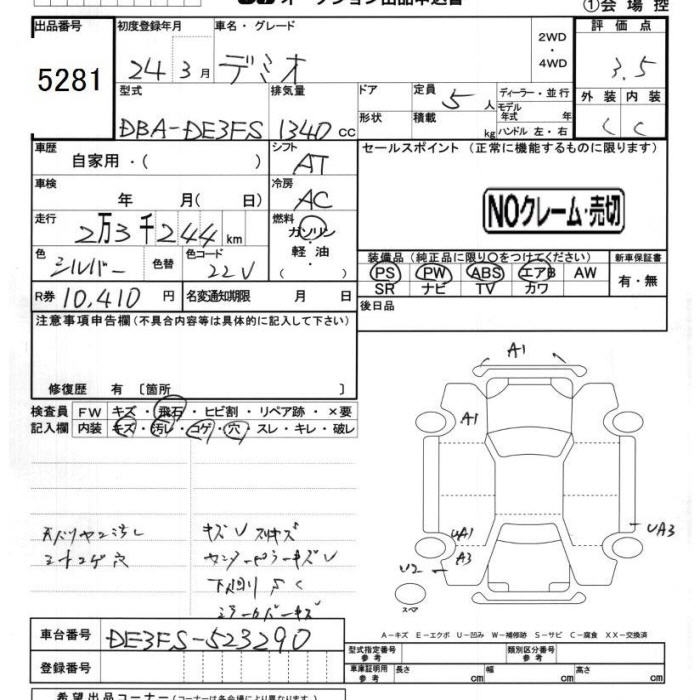 オークション出品申込書
①会 場 控
出品番号 初度登録年月 車名・グレード 評 価 点
5281 24 3月 デミオ 2WD・4WD 3.5
型式 排気量 ドア 定員 ディーラー・並行 外 装 内 装
DBA-DE3FS 1340 cc 5 人 モデル年式 年 C C
形状 積載 kg ハンドル 左・右
車歴 シフト セールスポイント (正常に機能するものに限ります)
自家用・( ) AT
車検 冷房
年 月( 日) AC NOクレーム・売切
走行 燃料
2万3千244 km ガソリン・軽油・
色 色替 色コード 装備品 (純正品に限り○をつけてください) 新車保証書
シルバー 22V PS PW ABS エアB AW 有・無
SR ナビ TV カワ
R券 10,410 円 名変通知期限 月 日 後日品
注意事項申告欄(不具合内容等は具体的に記入して下さい)
修復歴 有 〔箇所 〕
検査員 FW キズ・飛石・ヒビ割・リペア跡・×要
記入欄 内装 キズ・汚レ・コゲ・穴・スレ・キレ・破レ
A1
A1
UA3
UA1
A3
U2
スペア
天バリヤニ汚レ キズU スリキズ
シートコゲ穴
下回りSC
ミラーカバーキズ
A-キズ E-エクボ U-凹み W-補修跡 S-サビ C-腐食 XX-交換済
車台番号 DE3FS-523290
型式指定番号 参考 類別区分番号 参考
登録番号 車庫証明用 参考 長さ cm 幅 cm 高さ cm
希望出品コーナー(コーナーは各会場により異なります)